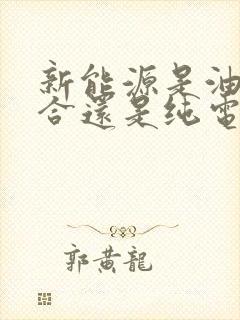 新能源是油
合還是纯電
郭黃龍